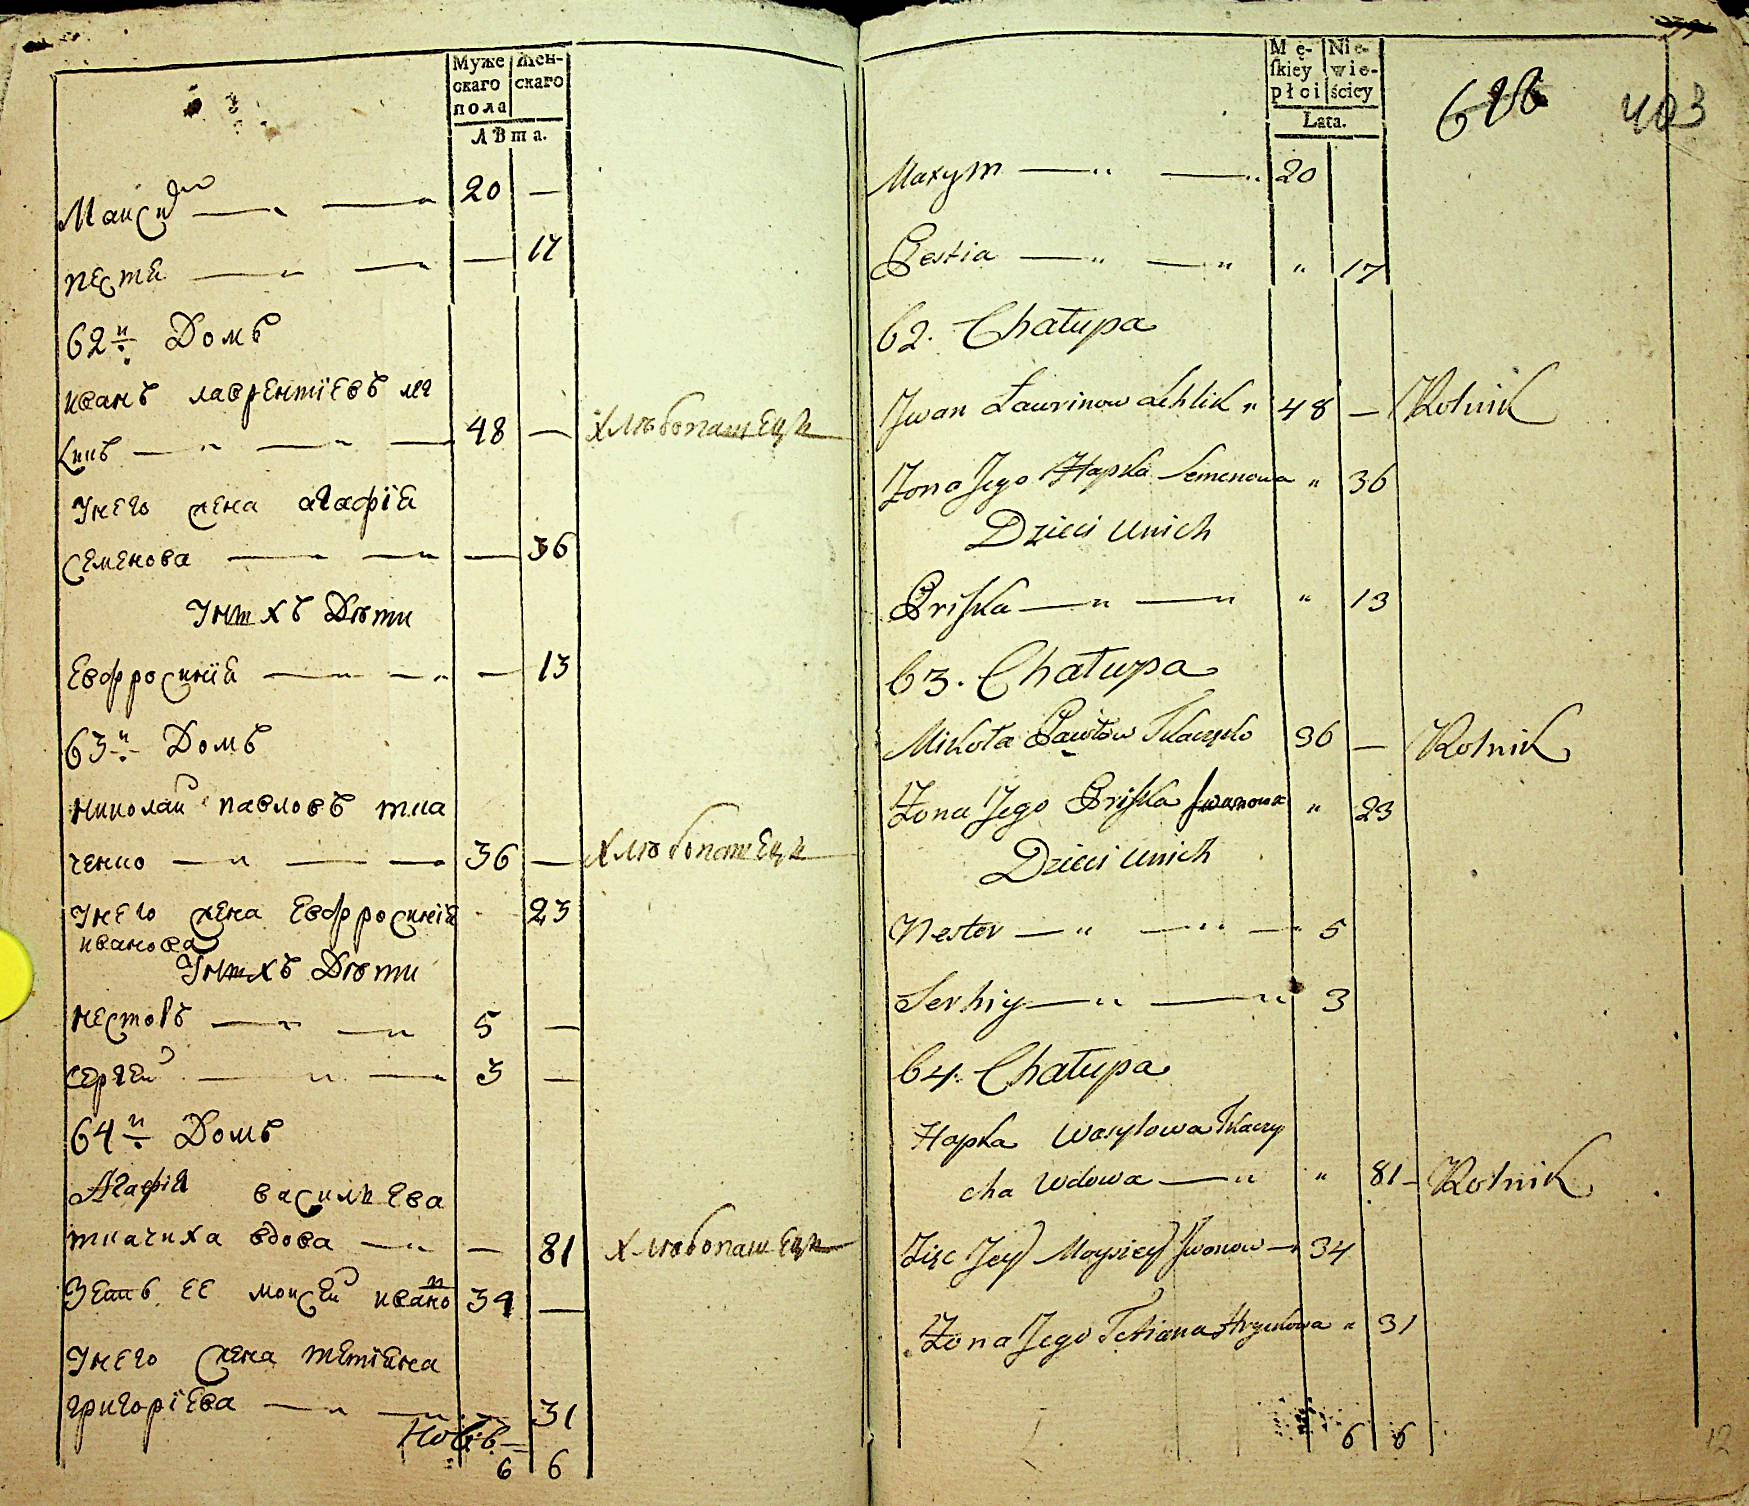 Муже Жен-
скаго скаго
пола
лѣта.
Макси́мъ — „ — „ 20 —
пестя — „ — „ — 17
62й Домъ
иванъ лаврентїевъ ле
хликъ — „ — „ — 48 — хлѣбопашецъ
У него жена агафїя
семенова — „ — „ — 36
У нихъ Дѣти
Евфросинїя — „ — „ — 13
63й Домъ
николай павловъ тка
ченко — „ — — 36 — хлѣбопашецъ
У него жена Евфросинїя 23
иванова
У нихъ Дѣти
несторъ — „ — „ 5 —
сергей — „ — 3 —
64й Домъ
Агафїя василиева
ткачиха вдова — „ — 81 хлѣбопашецъ
Зеть ее моисей ивано 34 —
У него жена тетіяна
григорїева — „ — „ — 31
6 6
Mę- Nie-
skiey wie-
płci ściey
Lata.
403
Maxym — „ — „ 20
Pestia — „ — „ „ 17
62. Chałupa
Jwan Ławrinow Lehlik „ 48 — Rolnik
Żona Jego Hapka Semenowa „ 36
Dzieci u nich
Priska — „ — „ „ 13
63. Chałupa
Mikoła Pawłow Tkaczenko 36 — Rolnik
Żona Jego Priska Jwanowa „ 23
Dzieci u nich
Nestor — „ — „ — 5
Serhiy — „ — „ 3
64. Chałupa
Hapka Wasylowa Tkaczy
cha Wdowa — „ „ 81 — Rolnik
Zięc Jey Moysiey Jwanow — 34
Żona Jego Tetiana Hryculowa „ 31
6 6
12